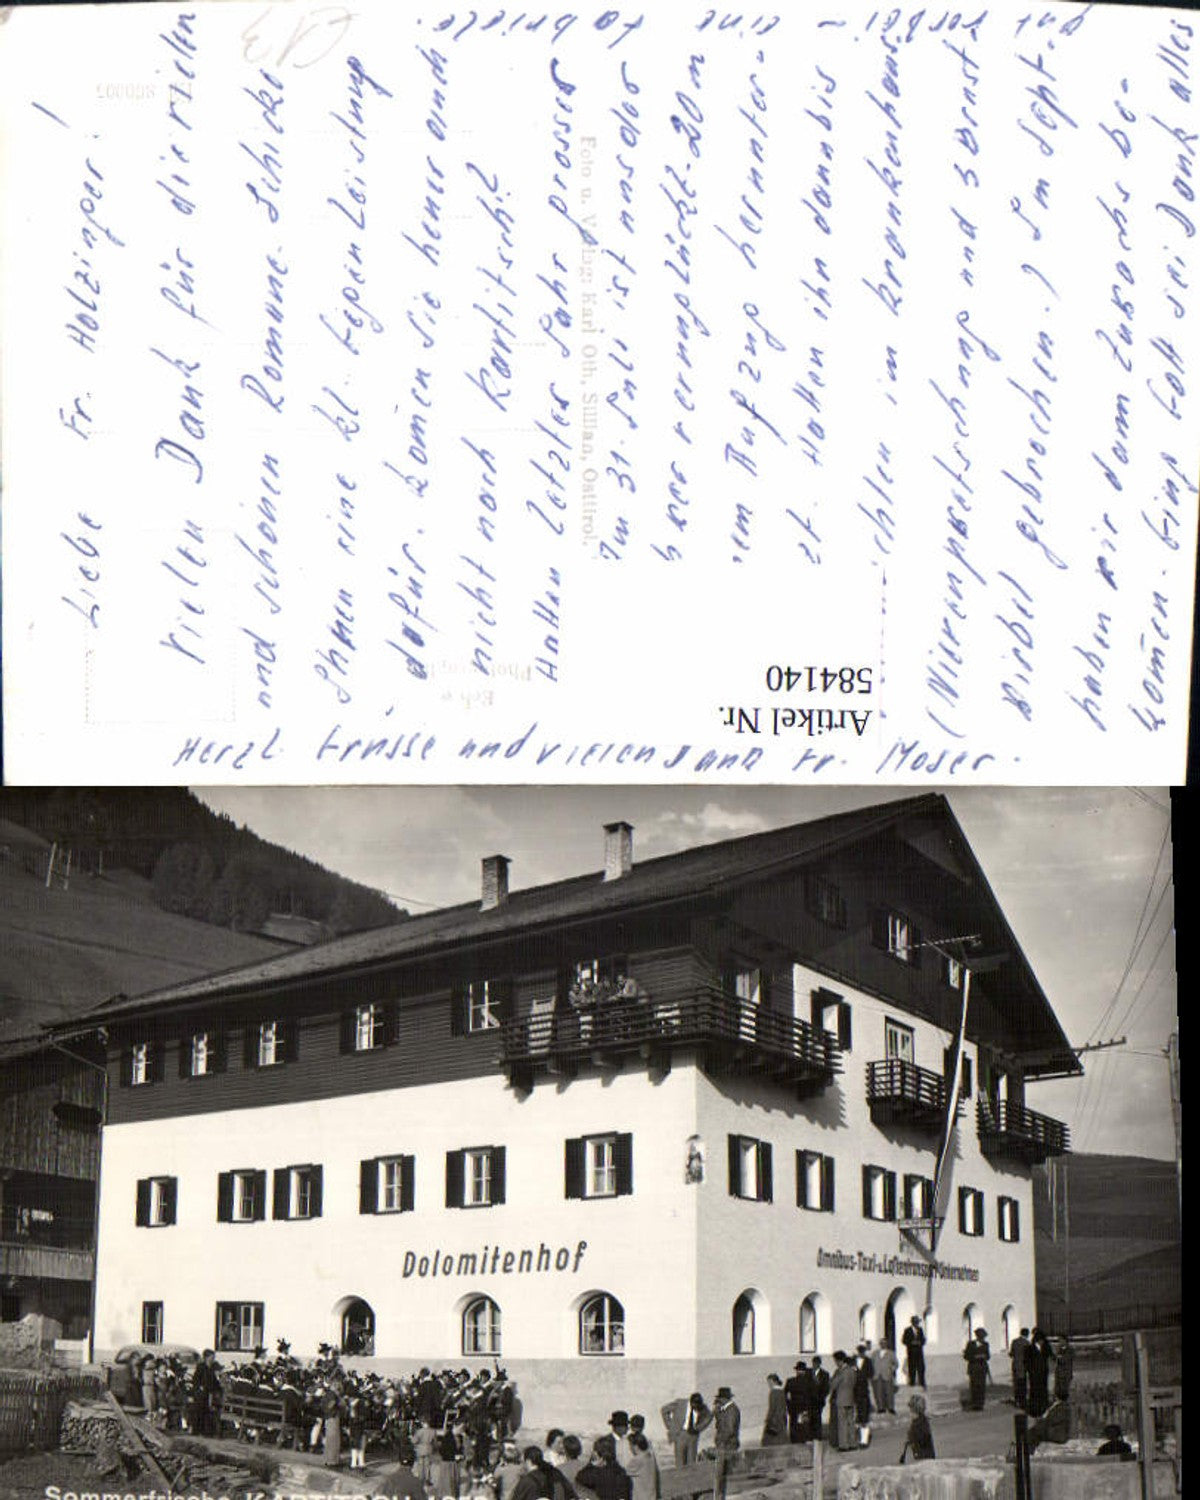 Liebe Fr. Holzinger!
Vielen Dank für die vielen
und schönen Romane. Schicke
Ihnen eine kl. Gegenleistung
dafür. Komen Sie heuer auch
nicht nach Kartitsch?
Hatten letztes Jahr grosses
Am 31. Juli ist unser
schwer verunglückt. 20 m
Aufzug herunter-
Hatten ihn dann bis
im Krankenhaus
(Nierenquetschung und sonst
Wirbel gebrochen.) Im Sept.
haben wir dann Zuwachs be-
komen. Ging Gott sei Dank alles
gut vorbei – eine Gabriele.
Herzl. Grüsse und vielen Dank Fr. Moser.
Foto u. Verlag: Karl Oth, Sillian, Osttirol.
Artikel Nr.
584140
Dolomitenhof
Omnibus-Taxi-u.Lastentransport-Unternehmen
Sommerfrische KARTITSCH